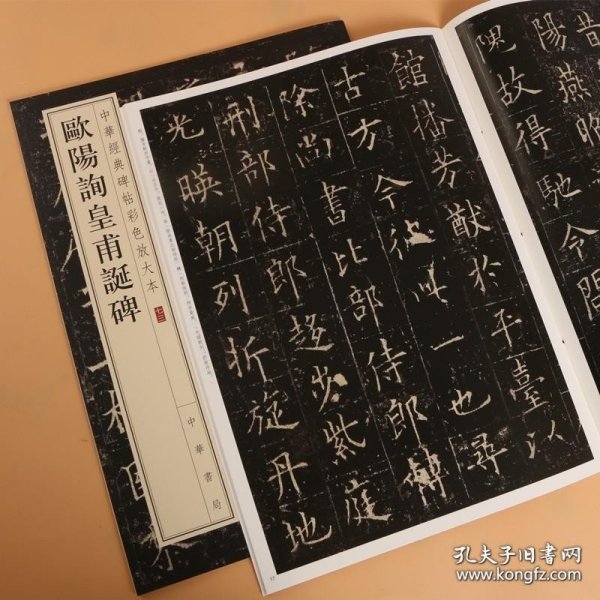 歐陽詢皇甫誕碑
中華經典碑帖彩色放大本
七三
中華書局
昔
陽燕昭
隗故得馳令問
館播芳猷於平臺以
古方今彼此一也尋
除尚書比部侍郎轉
刑部侍郎趍步紫庭
光暎朝列折旋丹地
孔夫子旧书网
www.kongfz.com